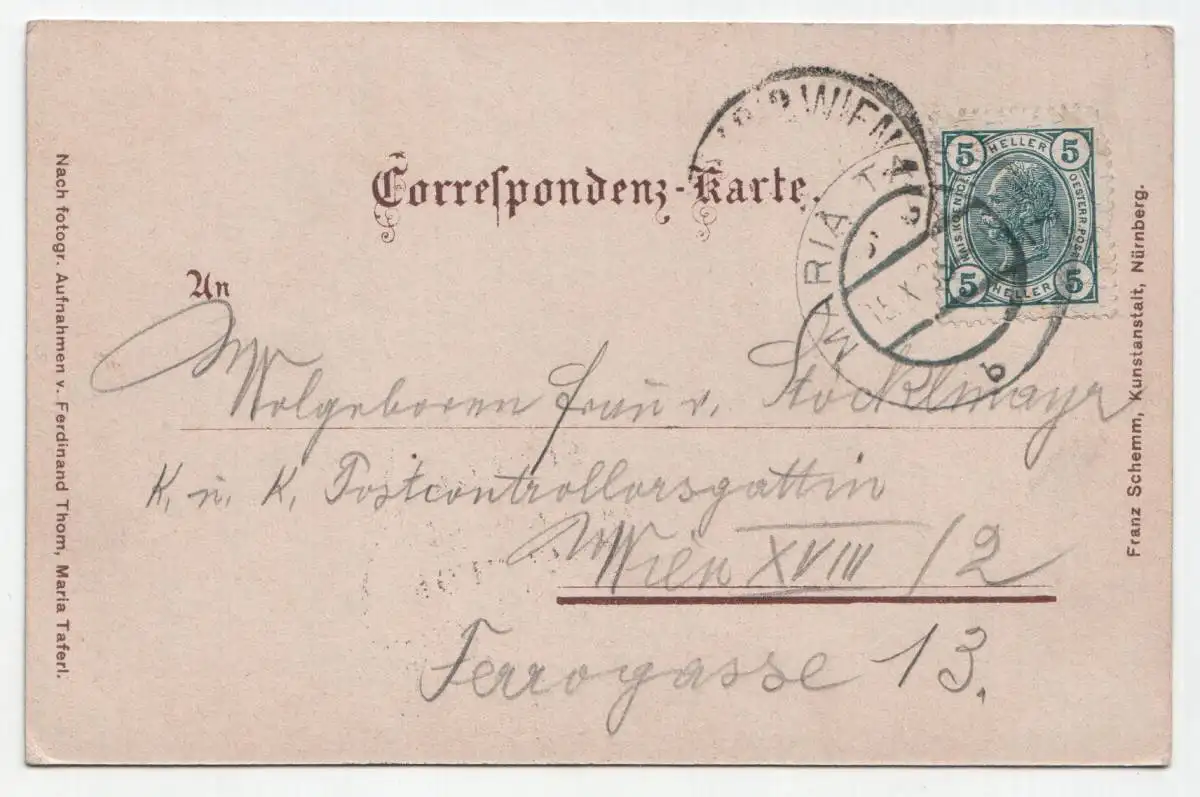 Correspondenz-Karte.
An
Wolgeboren Frau v. Stöcklmayr
K. u. K. Postcontrollorsgattin
Wien XVIII/2
Ferrogasse 13.
Nach fotogr. Aufnahmen v. Ferdinand Thom, Maria Taferl.
Franz Schemm, Kunstanstalt, Nürnberg.
WIEN
MARIA TA
15. X
b
5 HELLER 5
KAIS. KOENIGL.
OESTERR. POST
5 HELLER 5